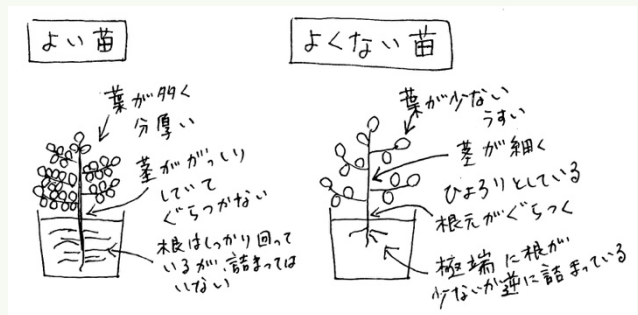 よい苗
葉が多く
分厚い
茎ががっしり
していて
ぐらつかない
根はしっかり回って
いるが、詰まっては
いない
よくない苗
葉が少ない
うすい
茎が細く
ひょろりとしている
根元がぐらつく
極端に根が
少ないか逆に詰まっている